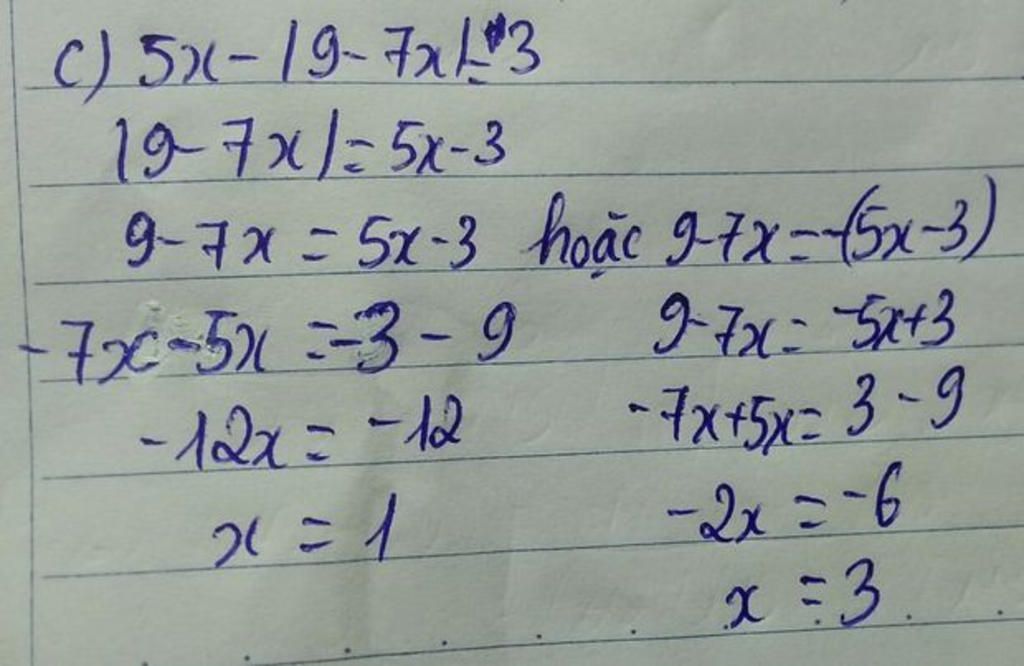 c) 5x - |9 - 7x| = 3
|9 - 7x| = 5x - 3
9 - 7x = 5x - 3 hoặc 9 - 7x = -(5x - 3)
-7x - 5x = -3 - 9 9 - 7x = -5x + 3
-12x = -12 -7x + 5x = 3 - 9
x = 1 -2x = -6
x = 3